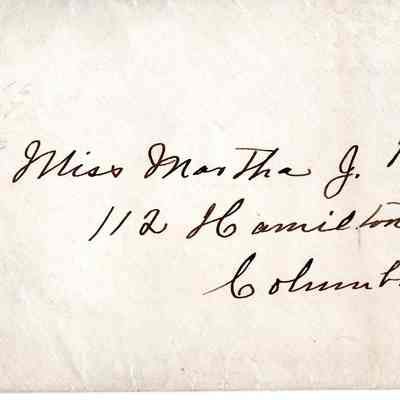 Miss Martha J.
112 Hamilton
Columb